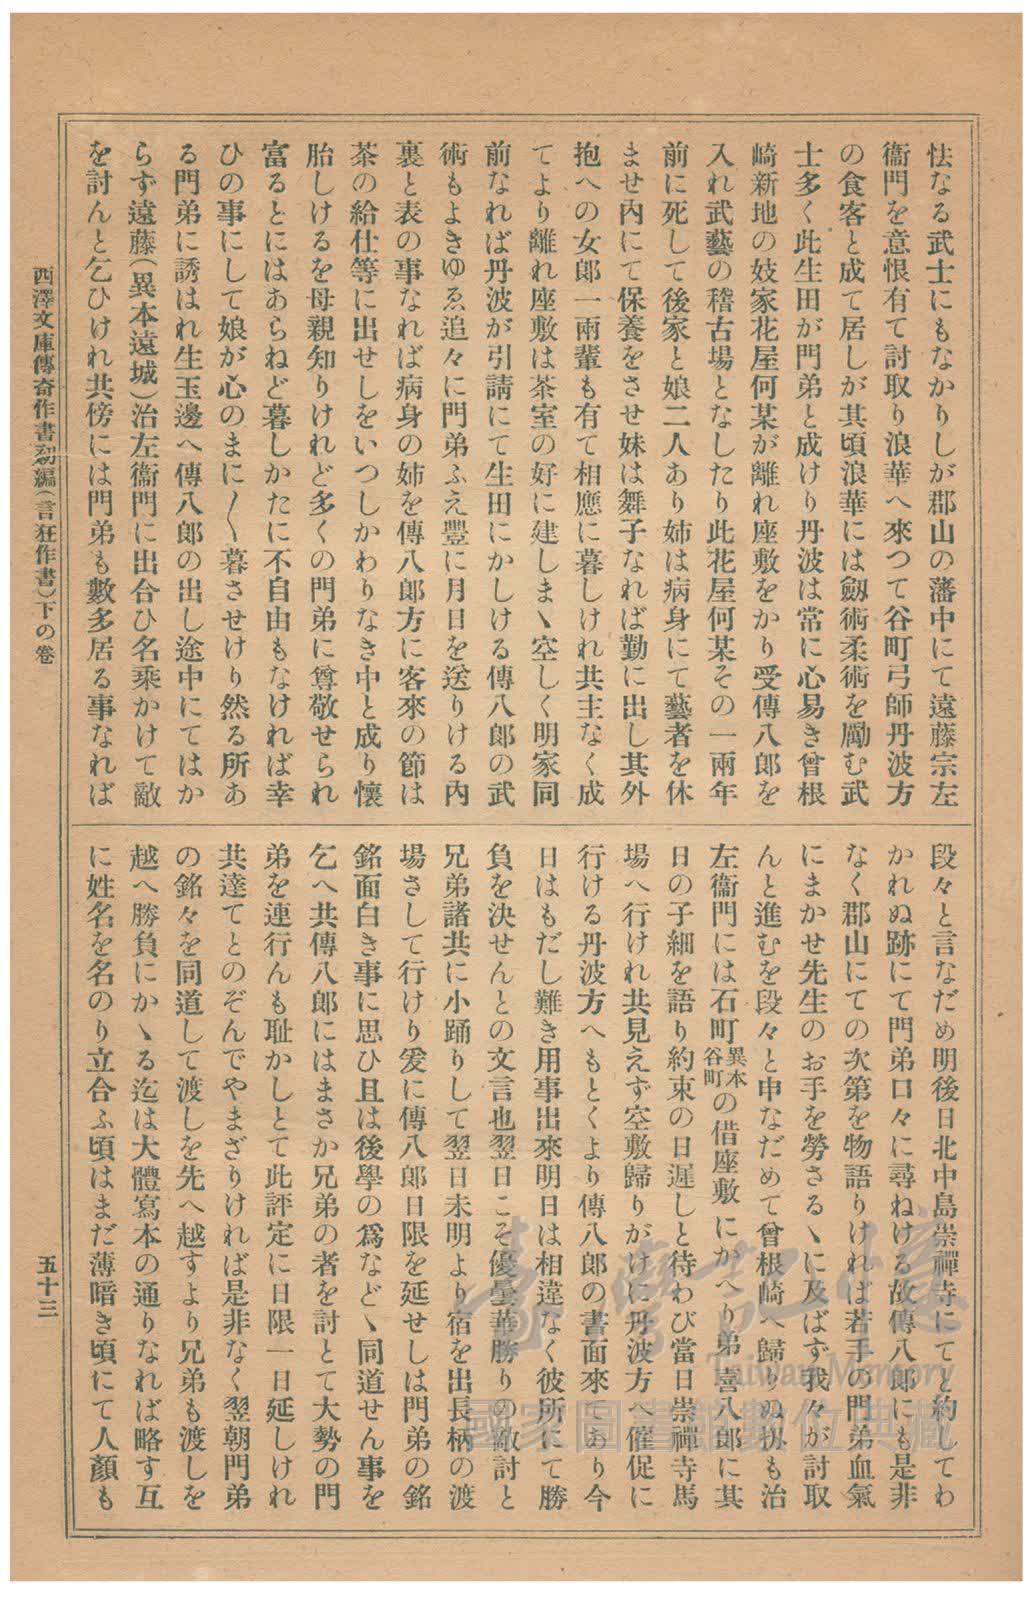 怯なる武士にもなかりしが郡山の藩中にて遠藤宗左
衞門を意恨有て討取り浪華へ來つて谷町弓師丹波方
の食客と成て居しが其頃浪華には劔術柔術を勵む武
士多く此生田が門弟と成けり丹波は常に心易き曾根
崎新地の妓家花屋何某が離れ座敷をかり受傳八郎を
入れ武藝の稽古場となしたり此花屋何某その一兩年
前に死して後家と娘二人あり姉は病身にて藝者を休
ませ内にて保養をさせ妹は舞子なれば勤に出し其外
抱への女郎一兩輩も有て相應に暮しけれ共主なく成
てより離れ座敷は茶室の好に建しまゝ空しく明家同
前なれば丹波が引請にて生田にかしける傳八郎の武
術もよきゆゑ追々に門弟ふえ豐に月日を送りける内
裏と表の事なれば病身の姉を傳八郎方に客來の節は
茶の給仕等に出せしをいつしかわりなき中と成り懷
胎しけるを母親知りけれど多くの門弟に尊敬せられ
富るとにはあらねど暮しかたに不自由もなければ幸
ひの事にして娘が心のまに〳〵暮させけり然る所あ
る門弟に誘はれ生玉邊へ傳八郎の出し途中にてはか
らず遠藤(異本遠城)治左衞門に出合ひ名乘かけて敵
を討んと乞ひけれ共傍には門弟も數多居る事なれば
段々と言なだめ明後日北中島崇禪寺にてと約してわ
かれぬ跡にて門弟口々に尋ねける故傳八郎にも是非
なく郡山にての次第を物語りければ若手の門弟血氣
にまかせ先生のお手を勞さるゝに及ばず我々が討取
んと進むを段々と申なだめて曾根崎へ歸りぬ扨も治
左衞門には石町異本谷町の借座敷にかへり弟喜八郎に其
日の子細を語り約束の日遲しと待わび當日崇禪寺馬
場へ行けれ共見えず空敷歸りがけに丹波方へ催促に
行ける丹波方へもとくより傳八郎の書面來てあり今
日はもだし難き用事出來明日は相違なく彼所にて勝
負を決せんとの文言也翌日こそ優曇華勝りの敵討と
兄弟諸共に小踊りして翌日未明より宿を出長柄の渡
場さして行けり爰に傳八郎日限を延せしは門弟の銘
銘面白き事に思ひ且は後學の爲などゝ同道せん事を
乞へ共傳八郎にはまさか兄弟の者を討とて大勢の門
弟を連行んも耻かしとて此評定に日限一日延しけれ
共達てとのぞんでやまざりければ是非なく翌朝門弟
の銘々を同道して渡しを先へ越すより兄弟も渡しを
越へ勝負にかゝる迄は大體寫本の通りなれば略す互
に姓名を名のり立合ふ頃はまだ薄暗き頃にて人顏も
西澤文庫傳奇作書初編(言狂作書)下の卷
五十三
臺灣記憶
Taiwan Memory
國家圖書館數位典藏